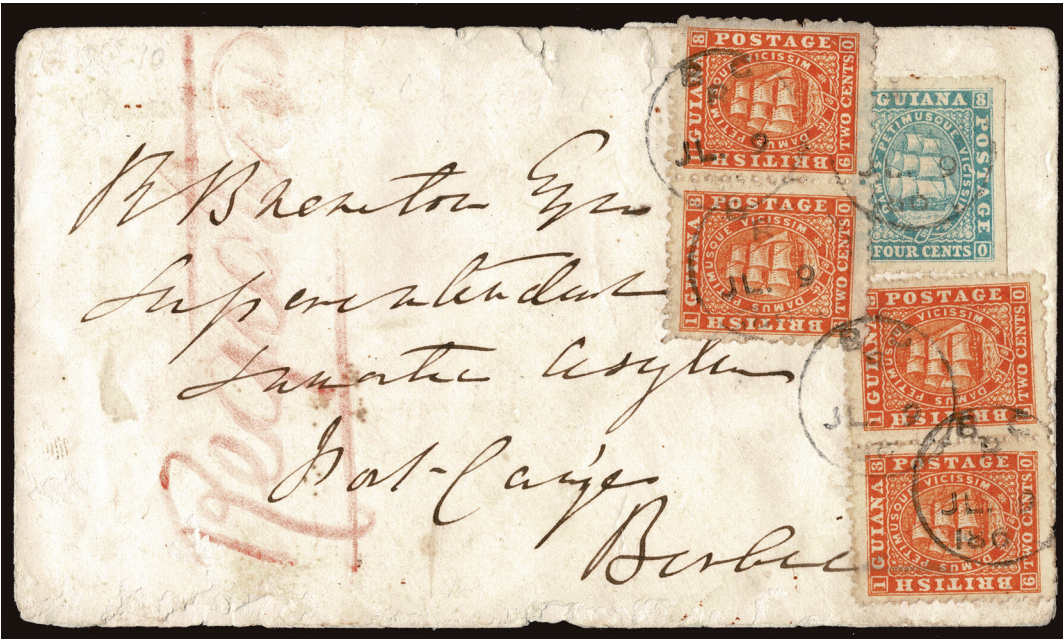 R Brereton Esqr
Superintendent
Lunatic Asylum
Fort Canje
Berbice
Registered
BRITISH GUIANA POSTAGE TWO CENTS
DAMUS PETIMUSQUE VICISSIM
1 8 6 0
JL. 9
BRITISH GUIANA POSTAGE TWO CENTS
DAMUS PETIMUSQUE VICISSIM
1 8 6 0
JL. 9
GUIANA POSTAGE FOUR CENTS
DAMUS PETIMUSQUE VICISSIM
8 0
9
BRITISH GUIANA POSTAGE TWO CENTS
DAMUS PETIMUSQUE VICISSIM
1 8 6 0
JL. 9
BRITISH GUIANA POSTAGE TWO CENTS
DAMUS PETIMUSQUE VICISSIM
1 8 6 0
JL.
186